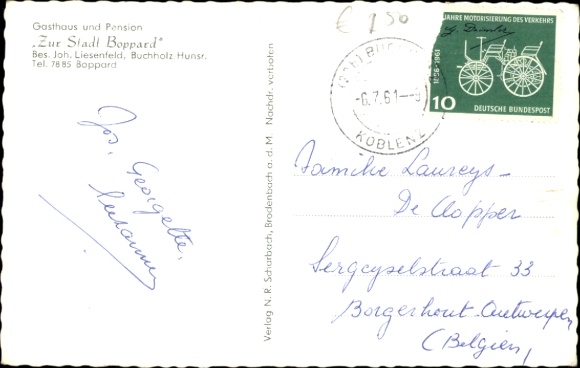 Gasthaus und Pension
„Zur Stadt Boppard"
Bes. Joh. Liesenfeld, Buchholz Hunsr.
Tel. 7885 Boppard
€ 1,50
JAHRE MOTORISIERUNG DES VERKEHRS
G. Daimler
1886-1961
10
DEUTSCHE BUNDESPOST
-6.7.61
KOBLENZ
Verlag N. R. Scharbach, Brodenbach a. d. M Nachdr. verboten
Jos. Georgette,
Familie Laureys-
De Clopper
Sergeyselstraat 33
Borgerhout-Antwerpen
(Belgien)